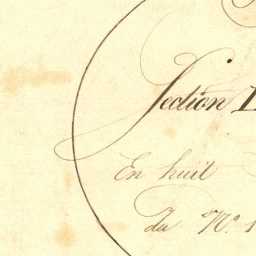 Section
En huit
du N.º 1